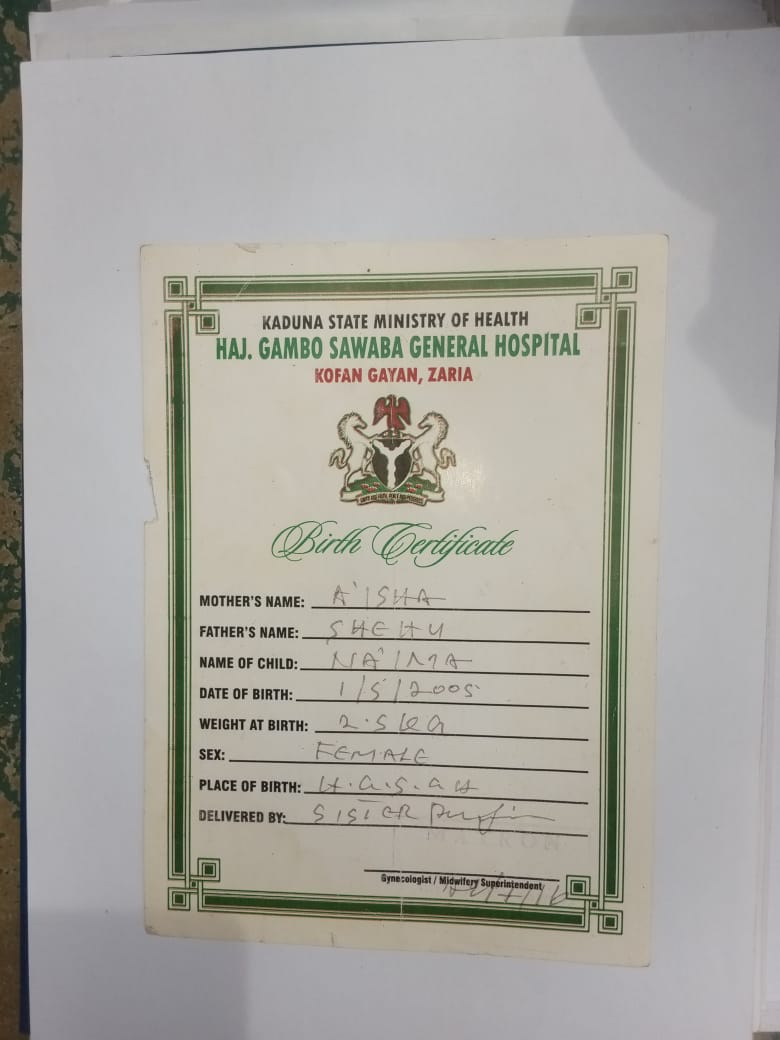 KADUNA STATE MINISTRY OF HEALTH
HAJ. GAMBO SAWABA GENERAL HOSPITAL
KOFAN GAYAN, ZARIA
Birth Certificate
MOTHER'S NAME: A'ISHA
FATHER'S NAME: SHEHU
NAME OF CHILD: NA'IMA
DATE OF BIRTH: 1/5/2005
WEIGHT AT BIRTH: 2.5KG
SEX: FEMALE
PLACE OF BIRTH: H.G.S.G.H
DELIVERED BY: SISTER
Gynecologist / Midwifery Superintendent